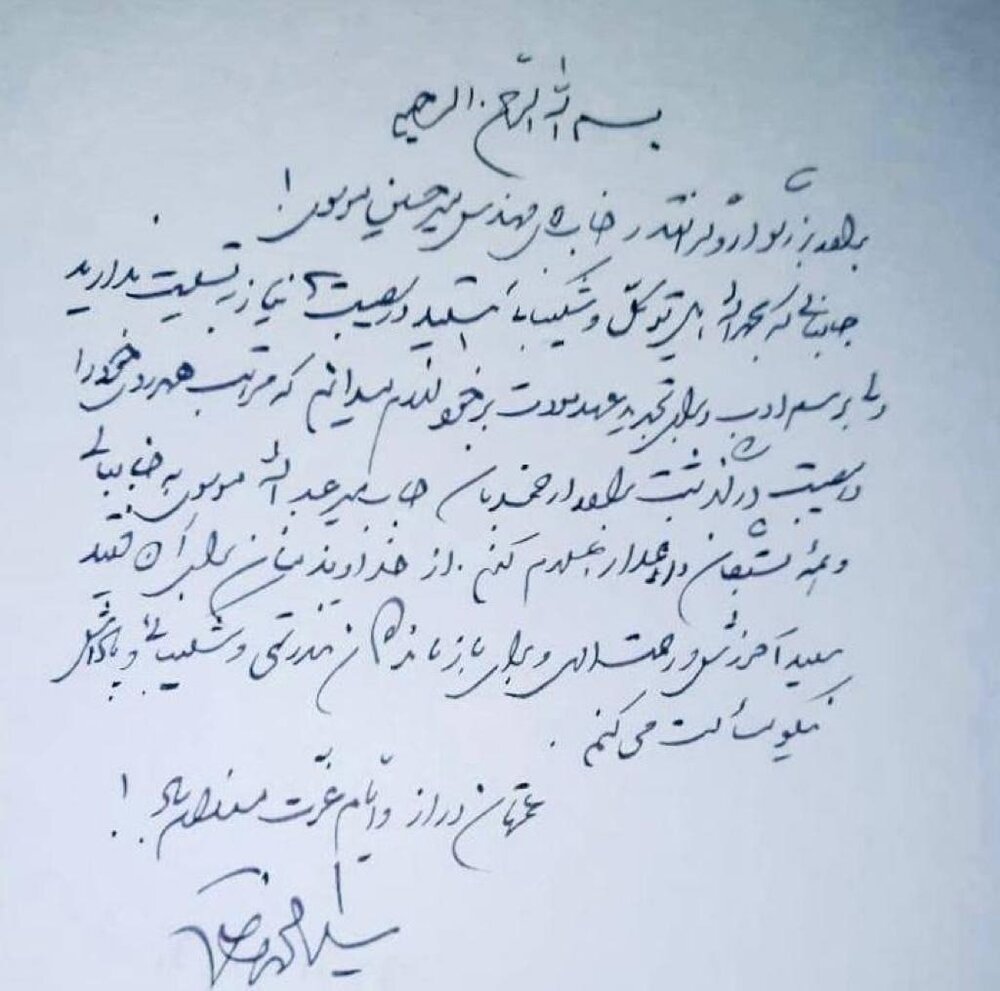 بسم الله الرحمن الرحیم
برادر بزرگوار و گرانقدر جناب آقای مهندس میرحسین موسوی!
جنابعالی که بحمدالله اهل توکل و شکیبایی هستید در مصیبت‌ها نیاز به تسلیت ندارید
ولی برسم ادب و برای تجدید عهد مودت بر خود لازم میدانم که مراتب همدردی خود را
در مصیبت درگذشت برادر ارجمندتان جناب میرعبدالله موسوی به جنابعالی
و همه منتسبان داغدار اعلام کنم. از خداوند منان برای آن فقید
سعید آمرزش و رحمت الهی و برای بازماندگان تندرستی و شکیبائی و پاداش
نیکو مسألت می‌کنم.
عمرتان دراز و ایام عزت مستدام باد!
سید محمد خاتمی